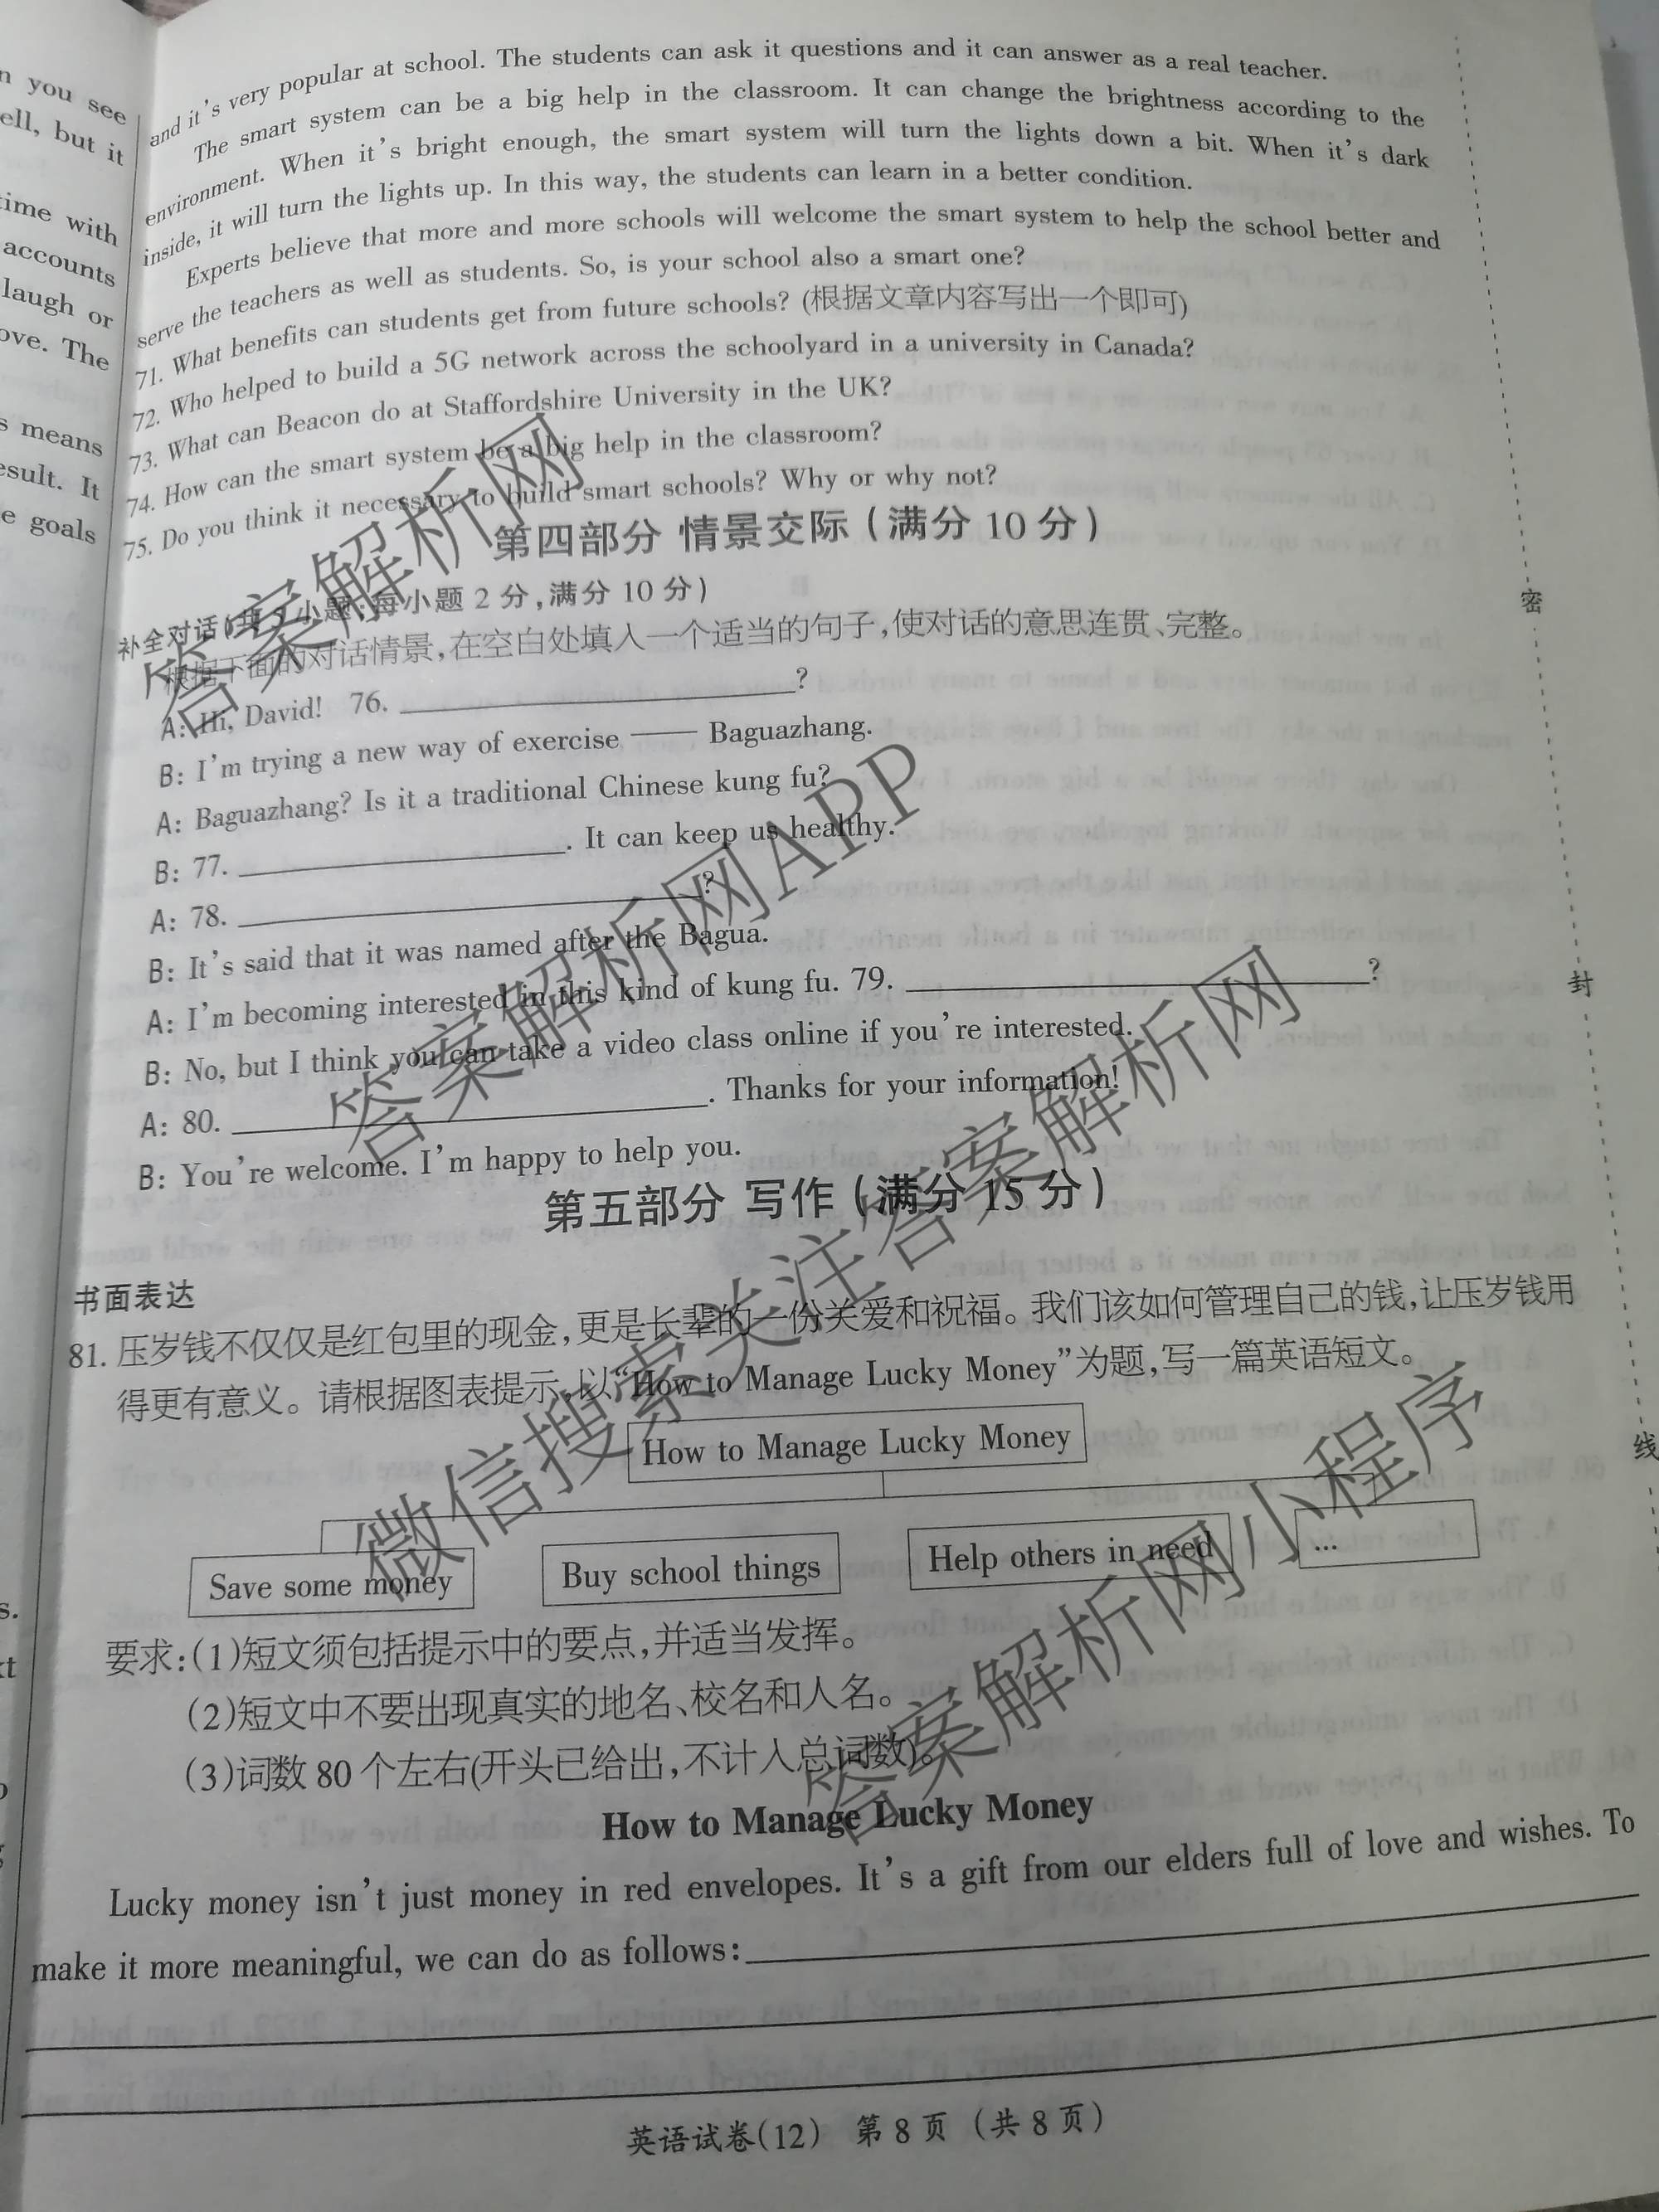 n you see
ell, but it
time with
accounts
laugh or
ove. The
s means
esult. It
e goals
and it's very popular at school. The students can ask it questions and it can answer as a real teacher.
The smart system can be a big help in the classroom. It can change the brightness according to the
environment. When it's bright enough, the smart system will turn the lights down a bit. When it's dark
inside, it will turn the lights up. In this way, the students can learn in a better condition.
Experts believe that more and more schools will welcome the smart system to help the school better and
serve the teachers as well as students. So, is your school also a smart one?
71. What benefits can students get from future schools? (根据文章内容写出一个即可)
72. Who helped to build a 5G network across the schoolyard in a university in Canada?
73. What can Beacon do at Staffordshire University in the UK?
74. How can the smart system be a big help in the classroom?
75. Do you think it necessary to build smart schools? Why or why not?
第四部分 情景交际(满分 10 分)
补全对话(共 5 小题;每小题 2 分,满分 10 分)
根据下面的对话情景,在空白处填入一个适当的句子,使对话的意思连贯、完整。
A: Hi, David! 76. ______?
B: I'm trying a new way of exercise —— Baguazhang.
A: Baguazhang? Is it a traditional Chinese kung fu?
B: 77. ______. It can keep us healthy.
A: 78. ______?
B: It's said that it was named after the Bagua.
A: I'm becoming interested in this kind of kung fu. 79. ______?
B: No, but I think you can take a video class online if you're interested.
A: 80. ______. Thanks for your information!
B: You're welcome. I'm happy to help you.
第五部分 写作(满分 15 分)
书面表达
81. 压岁钱不仅仅是红包里的现金,更是长辈的一份关爱和祝福。我们该如何管理自己的钱,让压岁钱用
得更有意义。请根据图表提示,以“How to Manage Lucky Money”为题,写一篇英语短文。
How to Manage Lucky Money
Save some money
Buy school things
Help others in need
...
要求:(1)短文须包括提示中的要点,并适当发挥。
(2)短文中不要出现真实的地名、校名和人名。
(3)词数 80 个左右(开头已给出,不计入总词数)。
How to Manage Lucky Money
Lucky money isn't just money in red envelopes. It's a gift from our elders full of love and wishes. To
make it more meaningful, we can do as follows:
英语试卷(12) 第 8 页 (共 8 页)
密
封
线
答案解析网
答案解析网APP
微信搜索关注答案解析网
答案解析网小程序